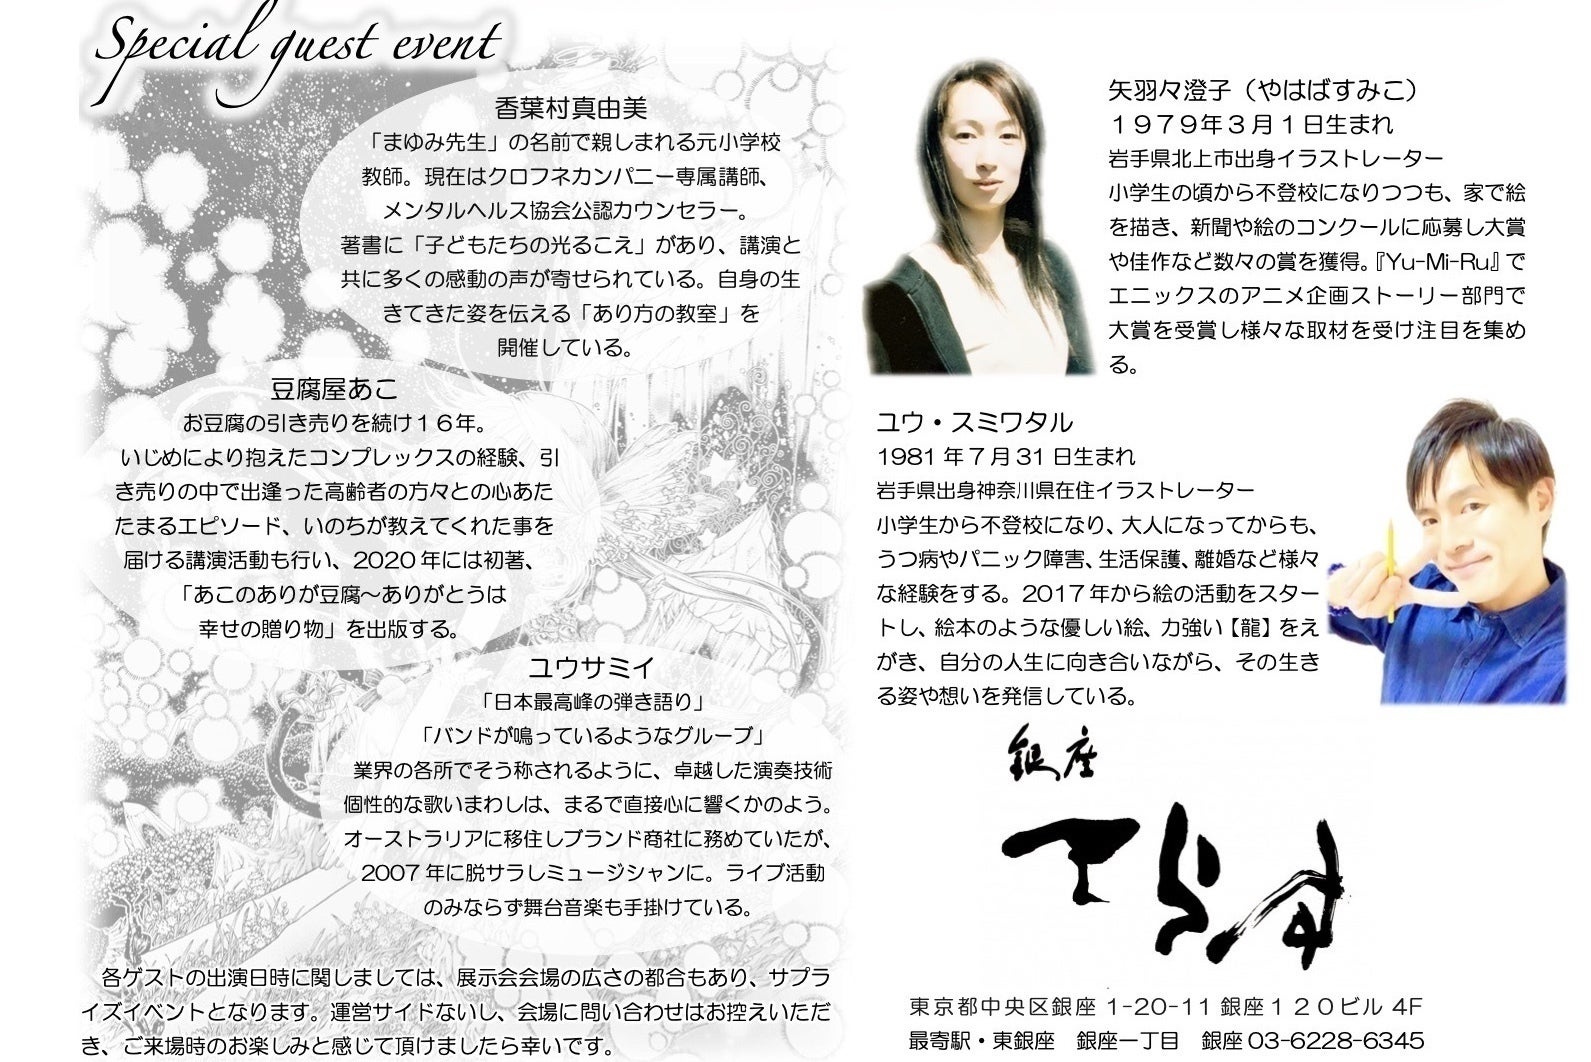 Special guest event
香葉村真由美
「まゆみ先生」の名前で親しまれる元小学校
教師。現在はクロフネカンパニー専属講師、
メンタルヘルス協会公認カウンセラー。
著書に「子どもたちの光るこえ」があり、講演と
共に多くの感動の声が寄せられている。自身の生
きてきた姿を伝える「あり方の教室」を
開催している。
豆腐屋あこ
お豆腐の引き売りを続け１６年。
いじめにより抱えたコンプレックスの経験、引
き売りの中で出逢った高齢者の方々との心あた
たまるエピソード、いのちが教えてくれた事を
届ける講演活動も行い、2020 年には初著、
「あこのありが豆腐～ありがとうは
幸せの贈り物」を出版する。
ユウサミイ
「日本最高峰の弾き語り」
「バンドが鳴っているようなグルーブ」
業界の各所でそう称されるように、卓越した演奏技術
個性的な歌いまわしは、まるで直接心に響くかのよう。
オーストラリアに移住しブランド商社に務めていたが、
2007 年に脱サラしミュージシャンに。ライブ活動
のみならず舞台音楽も手掛けている。
各ゲストの出演日時に関しましては、展示会会場の広さの都合もあり、サプラ
イズイベントとなります。運営サイドないし、会場に問い合わせはお控えいただ
き、ご来場時のお楽しみと感じて頂けましたら幸いです。
矢羽々澄子（やはばすみこ）
１９７９年３月１日生まれ
岩手県北上市出身イラストレーター
小学生の頃から不登校になりつつも、家で絵
を描き、新聞や絵のコンクールに応募し大賞
や佳作など数々の賞を獲得。『Yu-Mi-Ru』で
エニックスのアニメ企画ストーリー部門で
大賞を受賞し様々な取材を受け注目を集め
る。
ユウ・スミワタル
1981 年 7 月 31 日生まれ
岩手県出身神奈川県在住イラストレーター
小学生から不登校になり、大人になってからも、
うつ病やパニック障害、生活保護、離婚など様々
な経験をする。2017 年から絵の活動をスター
トし、絵本のような優しい絵、力強い【龍】をえ
がき、自分の人生に向き合いながら、その生き
る姿や想いを発信している。
銀座
東京都中央区銀座 1-20-11 銀座１２０ビル 4F
最寄駅・東銀座　銀座一丁目　銀座 03-6228-6345